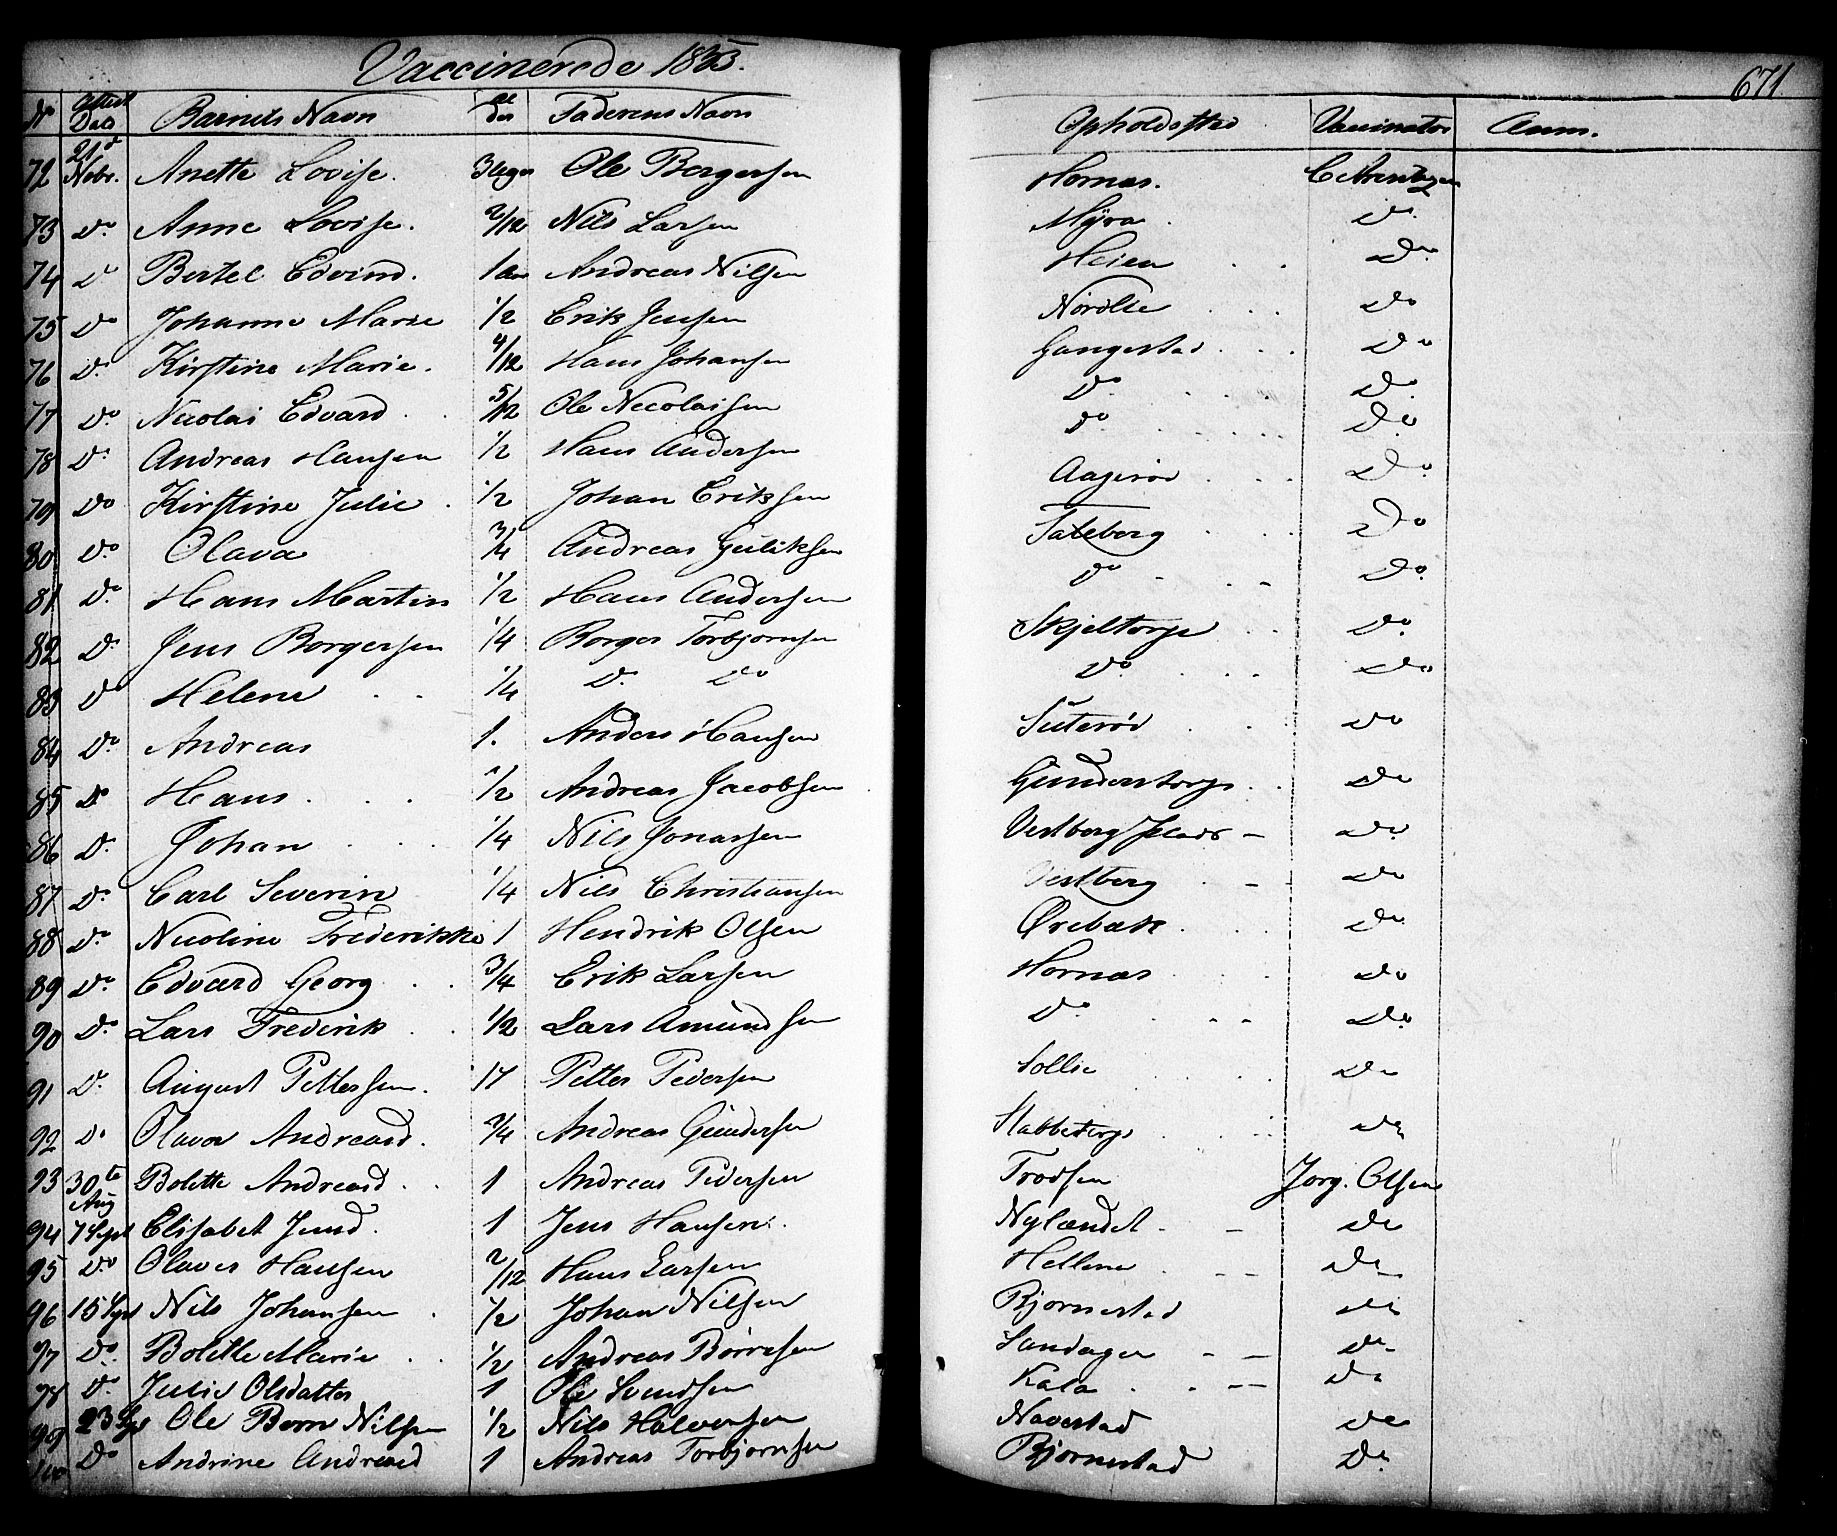 Vaccinerede 1835.
671
No Attest Dato Barnets Navn Alder Faderens Navn Opholdssted Vaccinator Anm.
72 21de Nobr. Anette Lovise. 3 Uger Ole Borgersen Hornæs.
73 Do Anne Lovise. 2/12 Nils Larsen Myra. Do
74 Do Bertel Edvind. 1 aar Andreas Nilsen Heien Do
75 Do Johanne Marie 1/2 Erik Jensen Do
76 Do Kirstine Marie. 4/12 Hans Johansen Gangestad Do
77 Do Nicolai Edvard 5/12 Ole Necolaisen Do Do
78 Do Andreas Hansen 1/2 Hans Andersen Do Do
79 Do Kirstine Julie. 1/2 Johan Eriksen Aagerød Do
80 Do Olava 3/4 Andreas Guliksen Sateberg Do
81 Do Hans Martin 1/2 Hans Andersen Do Do
82 Do Jens Borgersen 1/4 Borger Torbjornsen Skjeltorp Do
83 Do Helene 1/4 Do Do Do Do
84 Do Andreas 1. Anders Hansen Suterød Do
85 Do Hans 1/2 Andreas Jacobsen Gunderstorp Do
86 Do Johan 1/4 Nils Jonassen Vestberg Plads Do
87 Do Carl Severin 1/4 Nils Christiansen Vestberg Do
88 Do Nicoline Frederikke 1 Hendrik Olsen Ørebæk Do
89 Do Edvard Georg 3/4 Erik Larsen Hornæs Do
90 Do Lars Frederik 1/2 Lars Amundsen Do Do
91 Do August Pettersen. 17 Petter Pedersen Sollie Do
92 Do Olava Andreasd. 3/4 Andreas Gundersen Stabbetorp Do
93 30te Aug Bolette Andreasd. 1 Andreas Pedersen Jorg. Olsen
94 7 Sept Elisabet Jensd. 1 Jens Hansen. Nylændet Do
95 Do Olaves Hansen 2/12 Hans Larsen Hellene Do
96 15 Sept Nils Johansen 1/2 Johan Nilsen Bjornestad Do
97 Do Bolette Marie 1/2 Andreas Børresen Sandager Do
98 Do Julie Olsdatter 1 Ole Svendsen Kala Do
99 23 Sep Ole Bern Nilsen 1/2 Nils Halvorsen Navestad Do
100 Do Andrine Andreasd 1 Andreas Torbjornsen Bjornestad Do